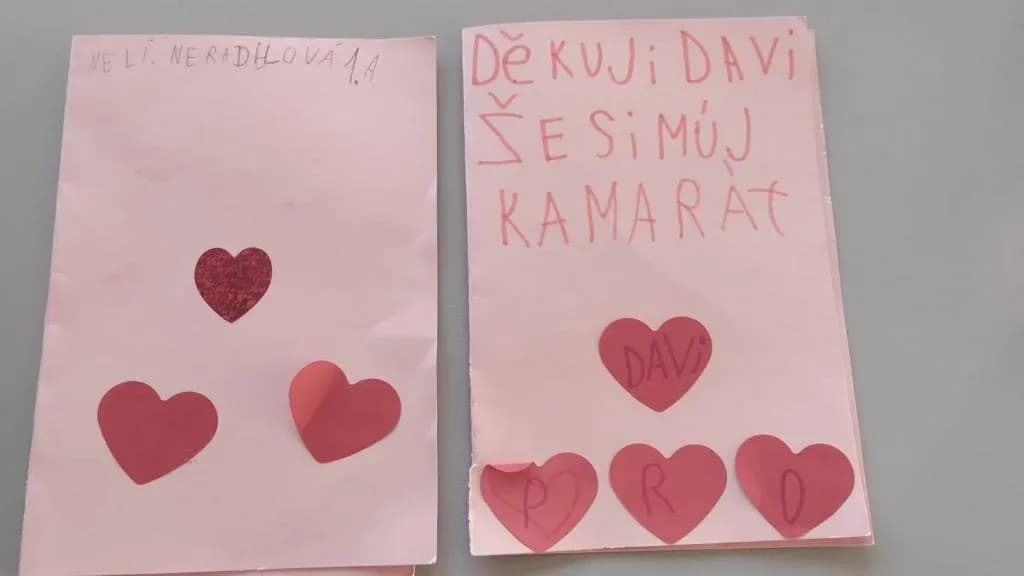 NELI. NERADILOVÁ 1.A
DĚKUJi DAVi
ŽE Si MŮJ
KAMARÀT
DAVi
P R O